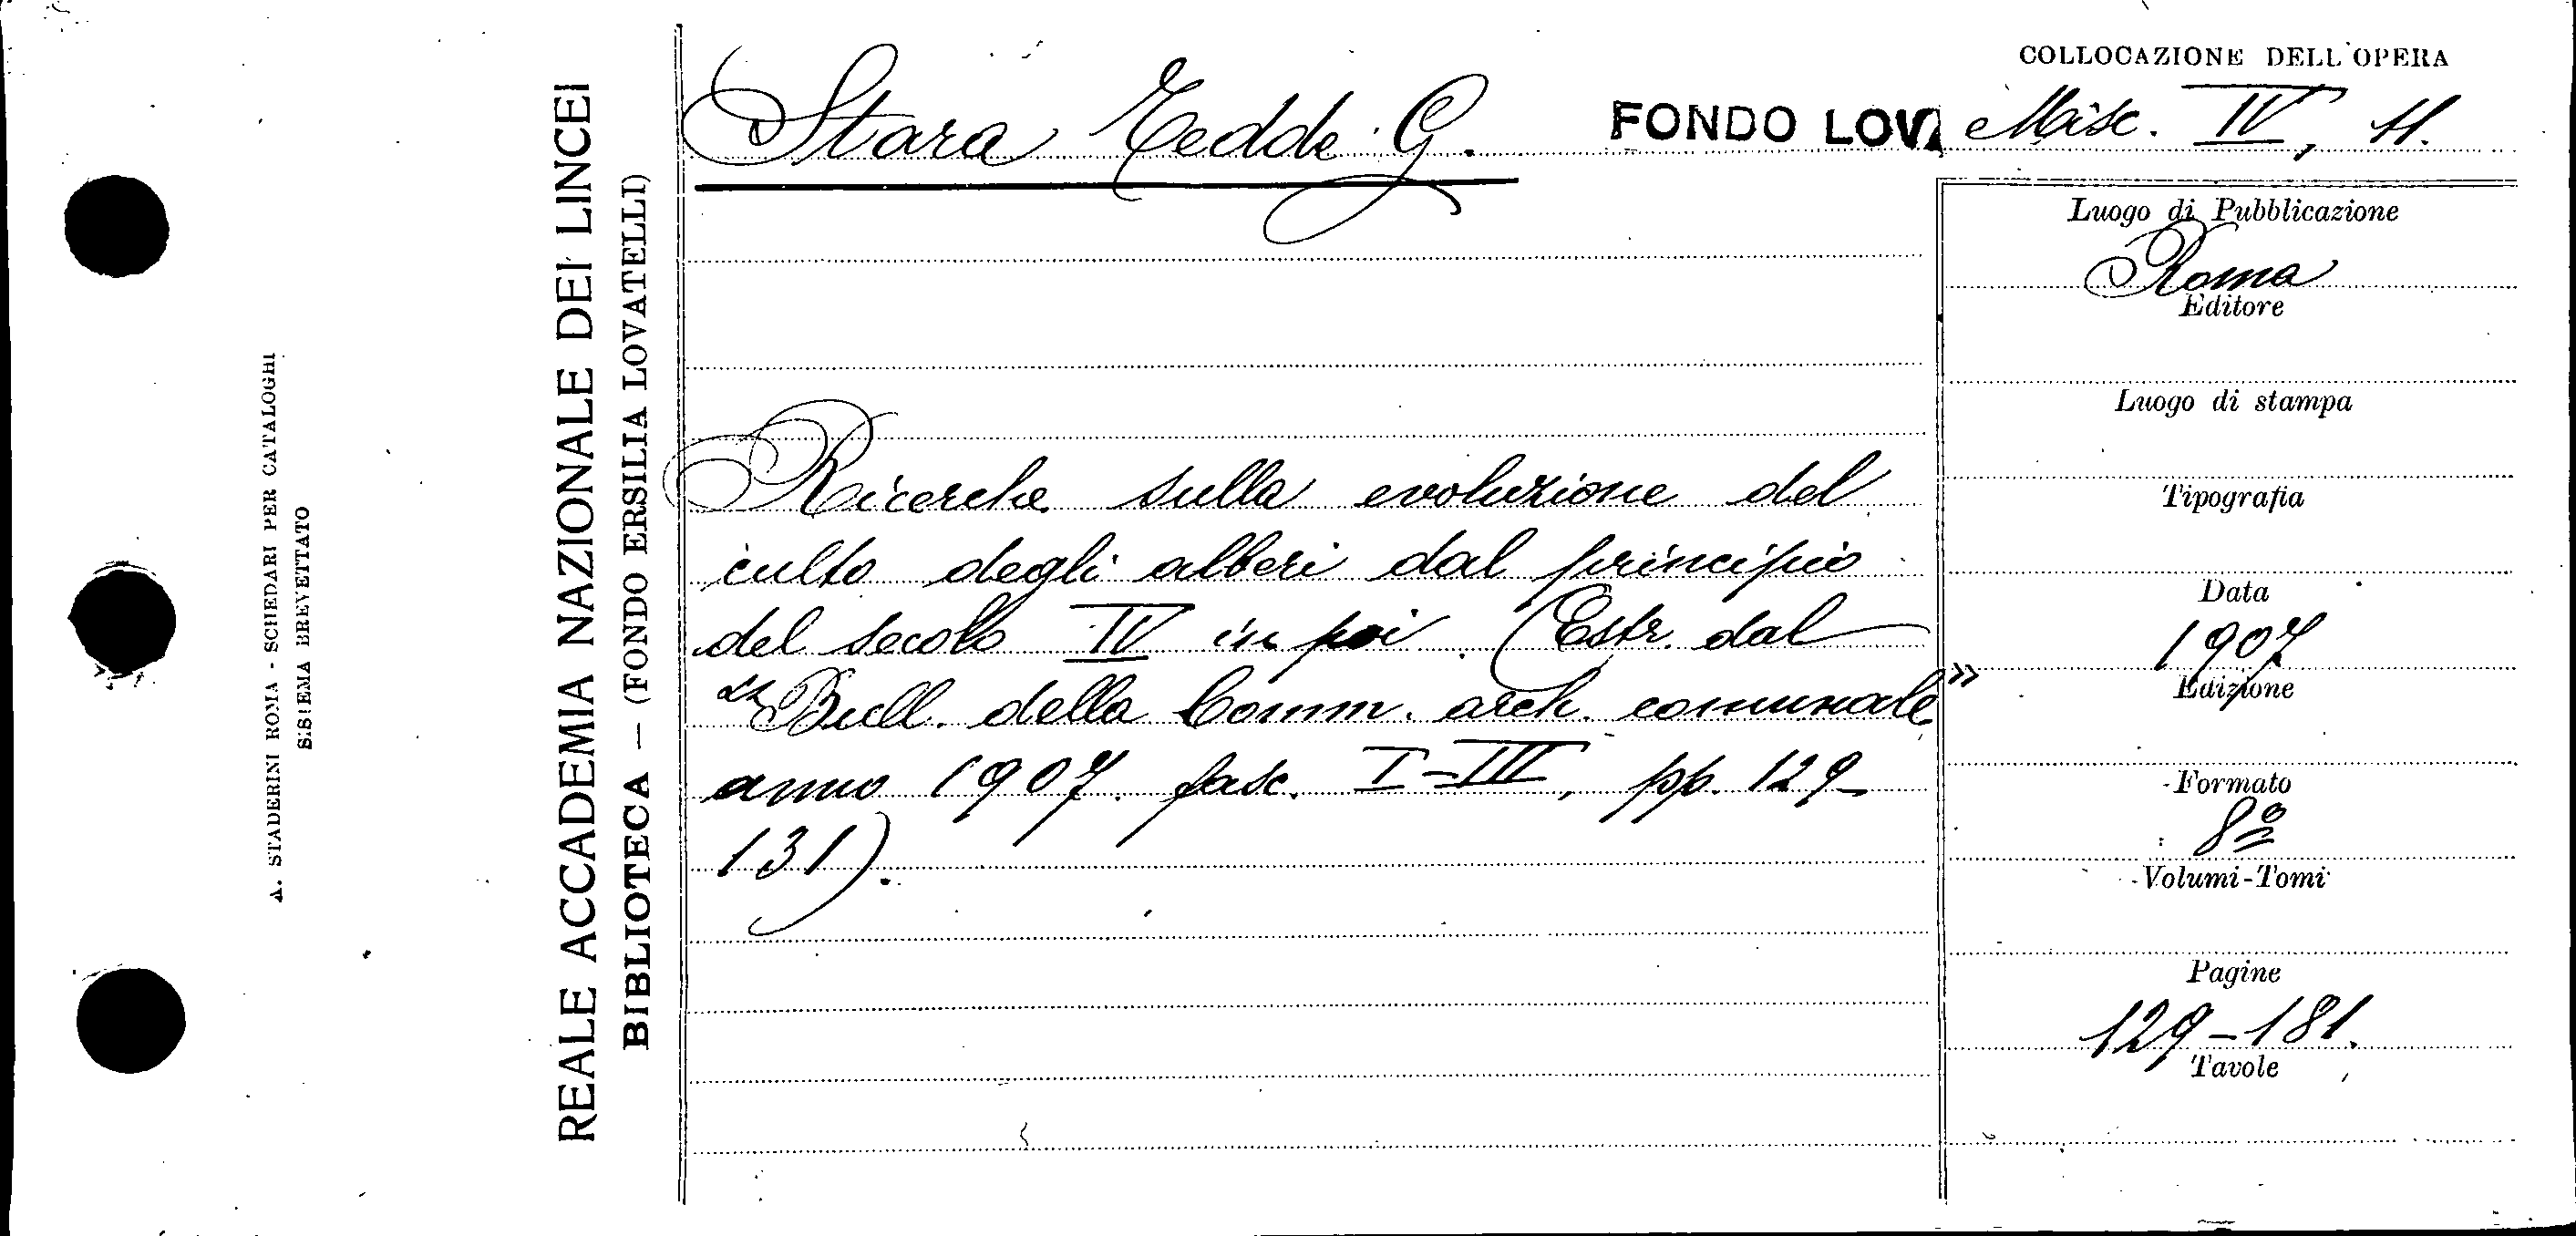 COLLOCAZIONE DELL'OPERA
Stara Tedde G.
FONDO LOVA
Misc. IV, 11.
Ricerche sulla evoluzione del
culto degli alberi dal principio
del secolo IV in poi. (Estr. dal
"Bull. della Comm. arch. comunale"
anno 1907. fasc. I-III, pp. 129-
131).
Luogo di Pubblicazione
Roma
Editore
Luogo di stampa
Tipografia
Data
1907
Edizione
Formato
8º
Volumi-Tomi
Pagine
129-181.
Tavole
REALE ACCADEMIA NAZIONALE DEI LINCEI
BIBLIOTECA — (FONDO ERSILIA LOVATELLI)
A. STADERINI ROMA - SCHEDARI PER CATALOGHI
SISTEMA BREVETTATO